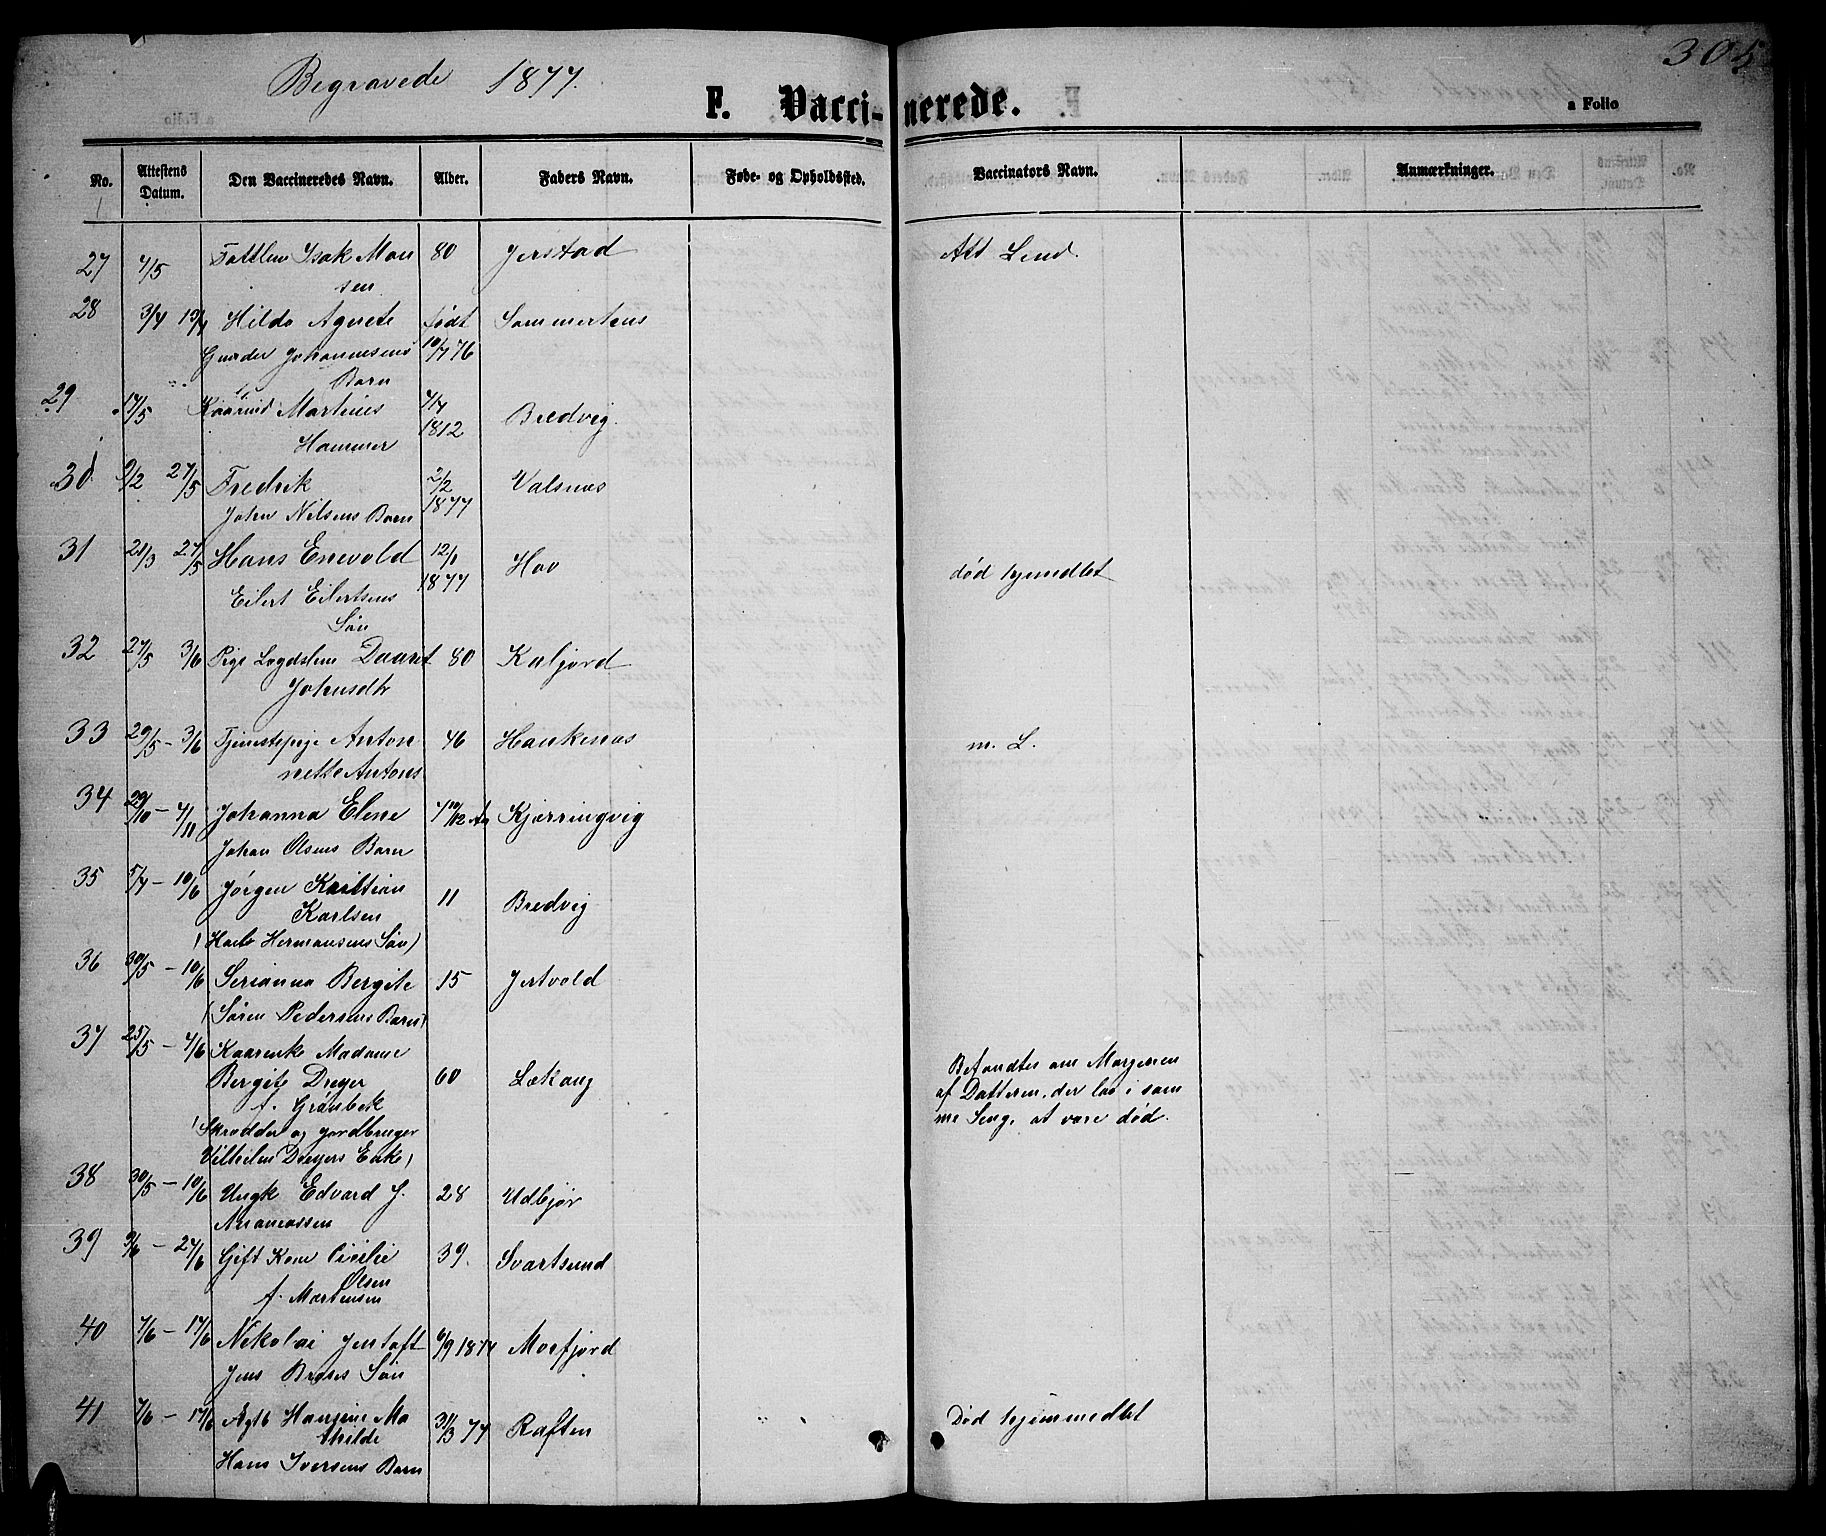 Begravede 1877.
305
F. Vacci-nerede.
a Folio
No.
Attestens Datum.
Den Vaccineredes Navn.
Alder.
Faders Navn.
Føde- og Opholdssted.
Vaccinators Navn.
Anmærkninger.
27 4/5 Fattlem Isak Mon 80 Jerstad Att Lend.
sen
28 3/4 Hilda Agnete født Sommertens
Gunder Johannesens 10/7 76
Barn
29 17/5 Martinus 4/7 Bredvig.
Hammer 1812
30 9/2 27/5 Fredrik 2/2 Valsnæs
John Nilsens Barn 1877
31 28/3 27/5 Hans Enevold 12/1 Hov død hjemdlet
Eilert Eilertsens 1877
Søn
32 27/5 3/6 Pige Lægdslem Daaret 80 Kaljord
Johnsdtr
33 29/5 - 3/6 Tjenestepige Anton 46 Haukenæs m. L.
nette Antons
34 29/10 - 4/11 Johanna Elene 4 10/12 Aar Kjerringvig
Johan Olsens Barn
35 5/4 - 10/6 Jørgen Kristian 11 Bredvig
Karlsen
(Karl Hermansens Søn)
36 30/5 - 10/6 Serianna Bergite 15 Jertvold
(Søren Pedersens Barn)
37 25/5 - 4/6 Kaarenke Madame Befandtes om Morgenen
Bergite Dreyer 60 Lækang af Datteren, der laa i sam
f. Grønbek me Seng, at være død.
(Skrædder og Jordbruger
Vilhelm Dreyers Enke)
38 30/5 - 10/6 Ungk Edvard J. 28 Udbjør
Ananiassen
39 3/6 - 24/6 Gift Kone Cicilie 39. Svartsund
Olsen
f. Martensen
40 7/6 - 17/6 Nikolai Jentoft 6/9 1874 Morfjord
Jens Søn
41 7/6 - 17/6 Ægtb Hansine Ma 31/3 77 Raften Død hjemmedlet
thilde
Hans Iversens Barn